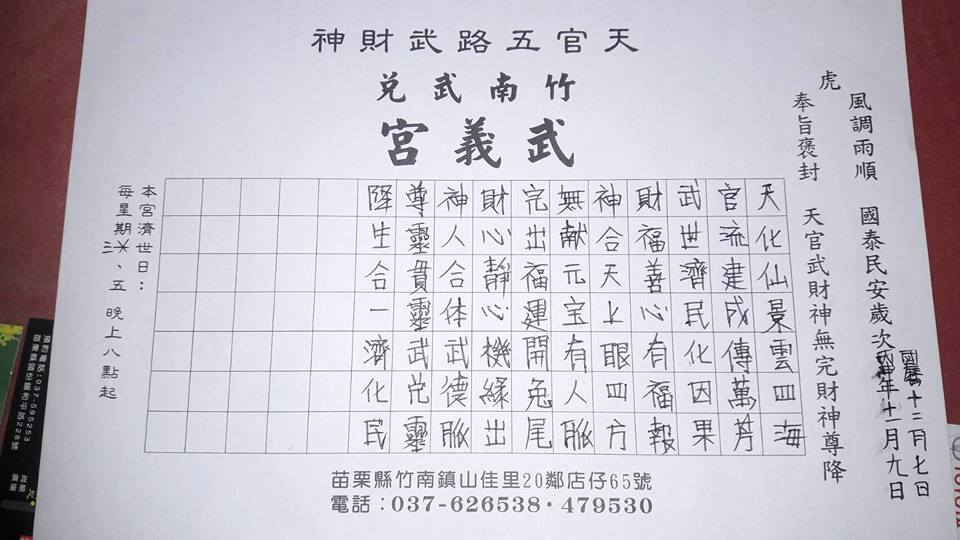 天官五路武財神
竹南武兌
武義宮
風調雨順 國泰民安歲次
十二月七日
年十一月九日
虎
奉旨褒封 天官武財神無完財神尊降
天化仙景雲四海
官流建成傳萬芳
武世濟民化因果
財福善心有福報
神合天上眼四方
無献元宝有人脈
完出福運開兔尾
財心靜心機緣出
神人合体武德脈
尊靈貫靈武兌靈
降生合一濟化民
本宮濟世日：
每星期三、五 晚上八點起
苗栗縣竹南鎮山佳里20鄰店仔65號
電話：037-626538·479530
預約電話:037-595253
苗栗縣頭份鎮和平路228號